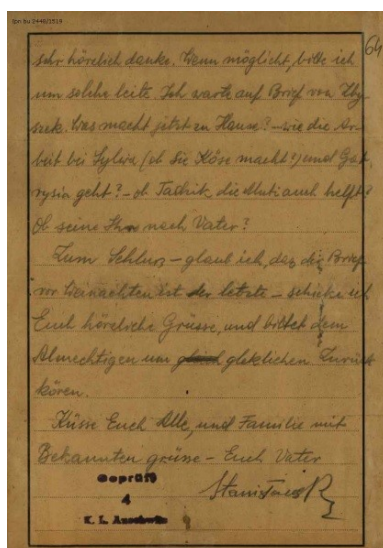 ipn bu 2448/1519
64
sehr hörzlich danke. Wenn möglicht, bitte ich
um solche leite. Ich warte auf Brief von Zby-
szek. Was macht jetzt zu Hause? – wie die Ar-
beit bei Sylwia (ob Sie Köse macht?) und
geht? – ob die Muti auch helft?
Ob seine nach Vater?
Zum Schluss – glaub ich, das die Brief
vor Weinachten ist der letzte – schicke ich
Euch hörzliche Grüsse, und bittet dem
Almechtigen um gleklichen Zurück
kören.
Küsse Euch Alle, und Familie mit
Bekannten grüsse – Euch Vater
Geprüft
4
K. L. Auschwitz